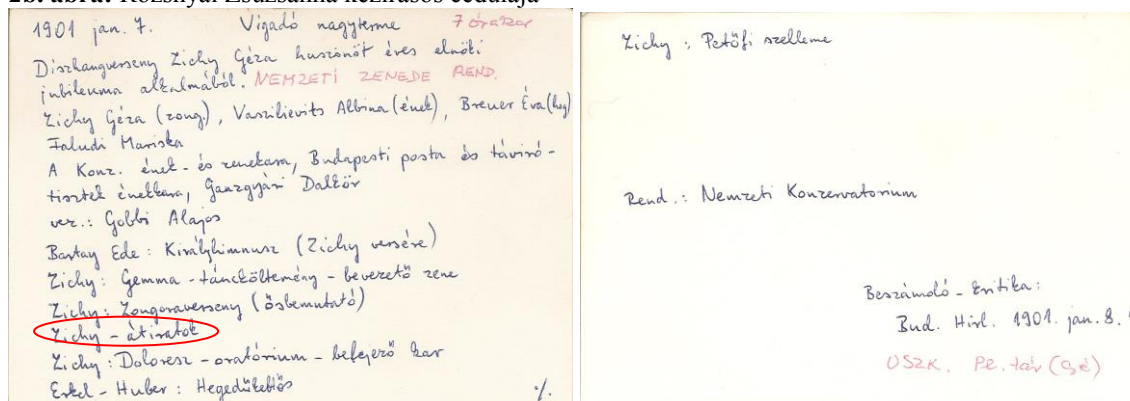 2b. ábra: Rozsnyai Zsuzsanna kézírásos cédulája
1901 jan. 7. Vigadó nagyterme 7 órakor
Díszhangverseny Zichy Géza huszonöt éves elnöki
jubileuma alkalmából. NEMZETI ZENEDE REND.
Zichy Géza (zong.), Vaszilievits Albina (ének), Breuer Éva (heg)
Faludi Mariska
A Konz. ének- és zenekara, Budapesti posta és táviró-
tisztek énekkara, Ganzgyári Dalkör
vez.: Gobbi Alajos
Bartay Ede: Királyhimnusz (Zichy versére)
Zichy: Gemma - táncköltemény - bevezető zene
Zichy: Zongoraverseny (ősbemutató)
Zichy - átiratok
Zichy: Doloresz - oratórium - befejező kar
Erkel - Huber: Hegedűkettős
%.
Zichy: Petőfi szelleme
Rend.: Nemzeti Konzervatorium
Beszámoló - kritika:
Bud. Hirl. 1901. jan. 8.
OSZK. Pe. tár